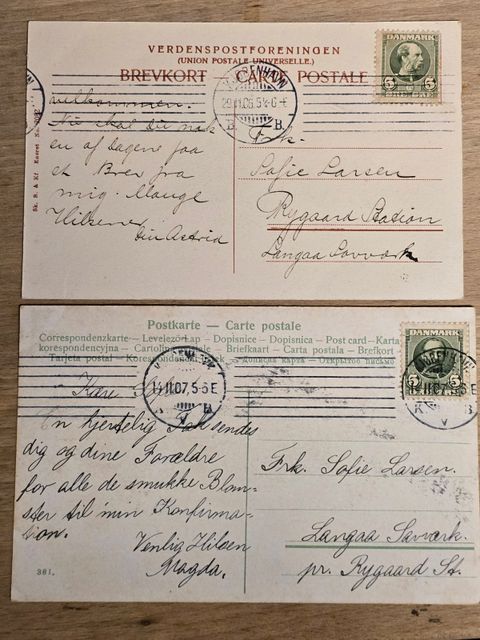 VERDENSPOSTFORENINGEN
(UNION POSTALE UNIVERSELLE.)
BREVKORT — CARTE POSTALE
DANMARK
5 5
KJØBENHAVN
29.11.06. 5½-6 E
B B
velkommen.
Nu skal du nok
en af Dagene faa
et Brev fra
mig. Mange
Hilsener
din Astrid
Frk.
Sofie Larsen
Rygaard Station
Langaa Savværk
Postkarte – Carte postale
Correspondenzkarte – Levelező-Lap – Dopisnica – Dopisnice – Post card – Karta
korespondencyjna – Cartolina postale – Briefkaart – Carta postala – Brefkort
Tarjeta postal – Korespondenční lístek – Дописна карта – Открытое письмо
DANMARK
5 5
KJØBENHAVN
14.11.07. 5-6 E
K B
V
Kære
En hjertelig Tak sendes
dig og dine Forældre
for alle de smukke Blom-
ster til min Konfirma-
tion.
Venlig Hilsen
Magda.
Frk. Sofie Larsen.
Langaa Savværk.
pr. Rygaard St.
381.